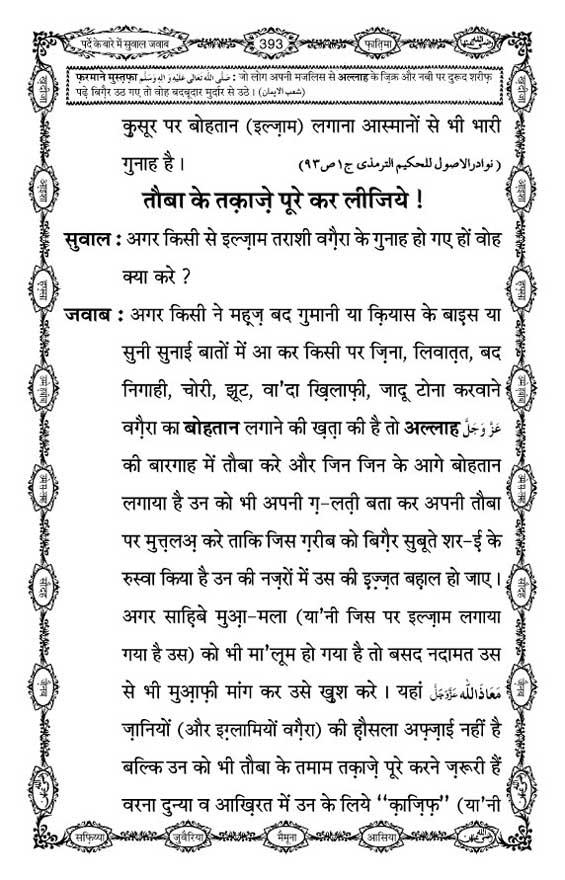 पर्दे के बारे में सुवाल जवाब
393
फ़ातिमा
फ़रमाने मुस्तफ़ा صَلَّى اللهُ تَعَالٰى عَلَيْهِ وَاٰلِهٖ وَسَلَّم : जो लोग अपनी मजलिस से अल्लाह के ज़िक्र और नबी पर दुरूद शरीफ़
पढ़े बिग़ैर उठ गए तो वोह बदबूदार मुर्दार से उठे । (شعب الایمان)
कुसूर पर बोहतान (इल्ज़ाम) लगाना आस्मानों से भी भारी
गुनाह है । (نوادر الاصول للحکیم الترمذی ج۱ص۹۳)
तौबा के तक़ाज़े पूरे कर लीजिये !
सुवाल : अगर किसी से इल्ज़ाम तराशी वग़ैरा के गुनाह हो गए हों वोह
क्या करे ?
जवाब : अगर किसी ने मह़्ज़ बद गुमानी या क़ियास के बाइस या
सुनी सुनाई बातों में आ कर किसी पर ज़िना, लिवात़त, बद
निगाही, चोरी, झूट, वा'दा ख़िलाफ़ी, जादू टोना करवाने
वग़ैरा का बोहतान लगाने की ख़त़ा की है तो अल्लाह عَزَّوَجَلَّ
की बारगाह में तौबा करे और जिन जिन के आगे बोहतान
लगाया है उन को भी अपनी ग़-लती बता कर अपनी तौबा
पर मुत्तलअ़ करे ताकि जिस ग़रीब को बिग़ैर सुबूते शर-ई के
रुस्वा किया है उन की नज़रों में उस की इ़ज़्ज़त बहाल हो जाए ।
अगर साहिबे मुआ़-मला (या'नी जिस पर इल्ज़ाम लगाया
गया है उस) को भी मा'लूम हो गया है तो बसद नदामत उस
से भी मुआ़फ़ी मांग कर उसे खुश करे । यहां مَعَاذَاللّٰه عَزَّوَجَلَّ
ज़ानियों (और इग़्लामियों वग़ैरा) की हौसला अफ़्ज़ाई नहीं है
बल्कि उन को भी तौबा के तमाम तक़ाज़े पूरे करने ज़रूरी हैं
वरना दुन्या व आख़िरत में उन के लिये ‘‘क़ाज़िफ़’’ (या'नी
सफ़िय्या
जुवैरिया
मैमूना
आसिया